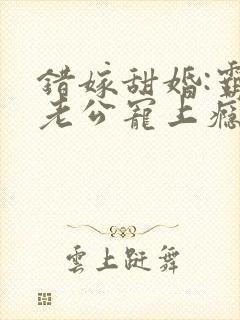 錯嫁甜婚:霸
老公寵上癮
雲上舞